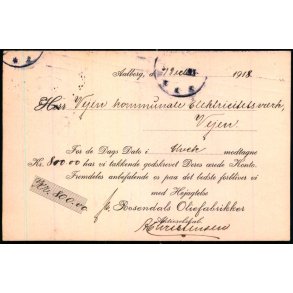 Aalborg, d. 1918.
Herr Vejen kommunale Elektricitetsværk,
Vejen.
For de Dags Dato i modtagne
Kr. 800.00 har vi takkende godskrevet Deres ærede Konto.
Fremdeles anbefalende os paa det bedste forbliver vi
Kr. 800.00
med Højagtelse
Rosendals Oliefabrikker
Aktieselskab.
Christensen